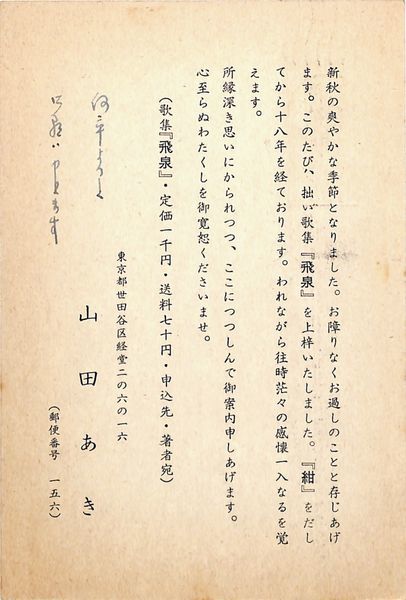 新秋の爽やかな季節となりました。お障りなくお過しのことと存じあげ
ます。このたび、拙い歌集『飛泉』を上梓いたしました。『紺』をだし
てから十八年を経ております。われながら往時茫々の感懐一入なるを覚
えます。
所縁深き思いにかられつつ、ここにつつしんで御案内申しあげます。
心至らぬわたくしを御寛恕くださいませ。
(歌集『飛泉』・定価一千円・送料七十円・申込先・著者宛)
東京都世田谷区経堂二の六の一六
山田あき
(郵便番号 一五六)